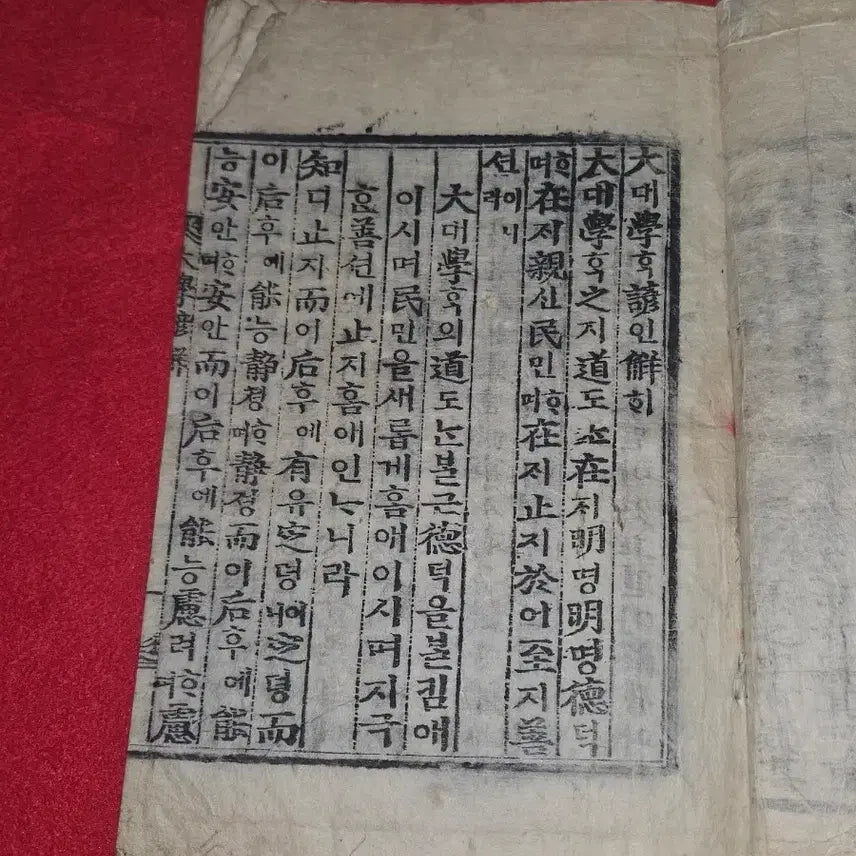 大대學ᄒᆞᆨ諺언觧ᄒᆡ
大대學ᄒᆞᆨ之지道도ᄂᆞᆫ在ᄌᆡ明명明명德덕
ᄒᆞ며在ᄌᆡ親신民민ᄒᆞ며在ᄌᆡ止지於어至지善
션이니라
大대學ᄒᆞᆨ의道도ᄂᆞᆫ불근德덕을불김애
이시며民민을새롭게홈애이시며지극
ᄒᆞᆫ善션에止지홈애인ᄂᆞ니라
知디止지而이后후에有유定뎡이니定뎡而
이后후에能능靜졍ᄒᆞ며靜졍而이后후에能
능安안ᄒᆞ며安안而이后후에能능慮려ᄒᆞ며慮
大學諺解